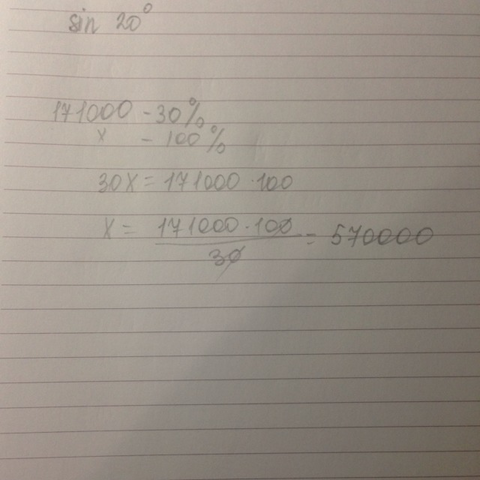 sin 20°
171000 - 30%
x - 100%
30x = 171000 · 100
x = 171000 · 100 / 30 = 570000